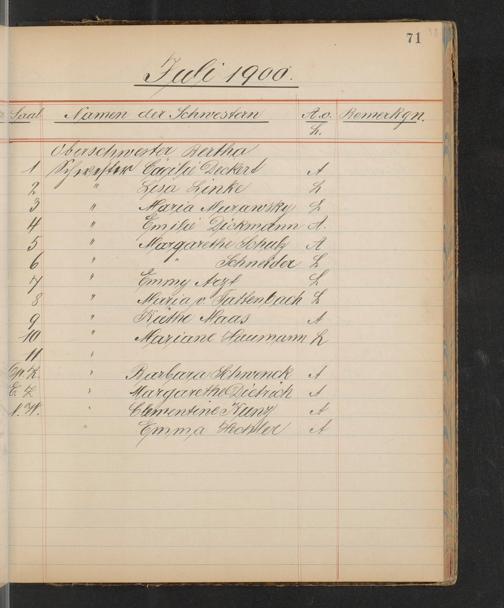 71
Juli 1900.
Saal Namen der Schwestern A.o. L. Bemerkgn.
Oberschwester Bertha
1 Schwester Cäcilie Deckert A
2 " Lisa Linke L
3 " Maria Murawsky L
4 " Emilie Dickmann A.
5 " Margarethe Schulz A
6 " " Schneider L
7 " Emmy Arzt L
8 " Maria v. Tattenbach L
9 " Käthe Maas A
10 " Mariane Naumann L
11 "
Op. Z. " Barbara Schwenck A
E. Z. " Margarethe Dietrich A
" Clementine Kunz A
" Emma A